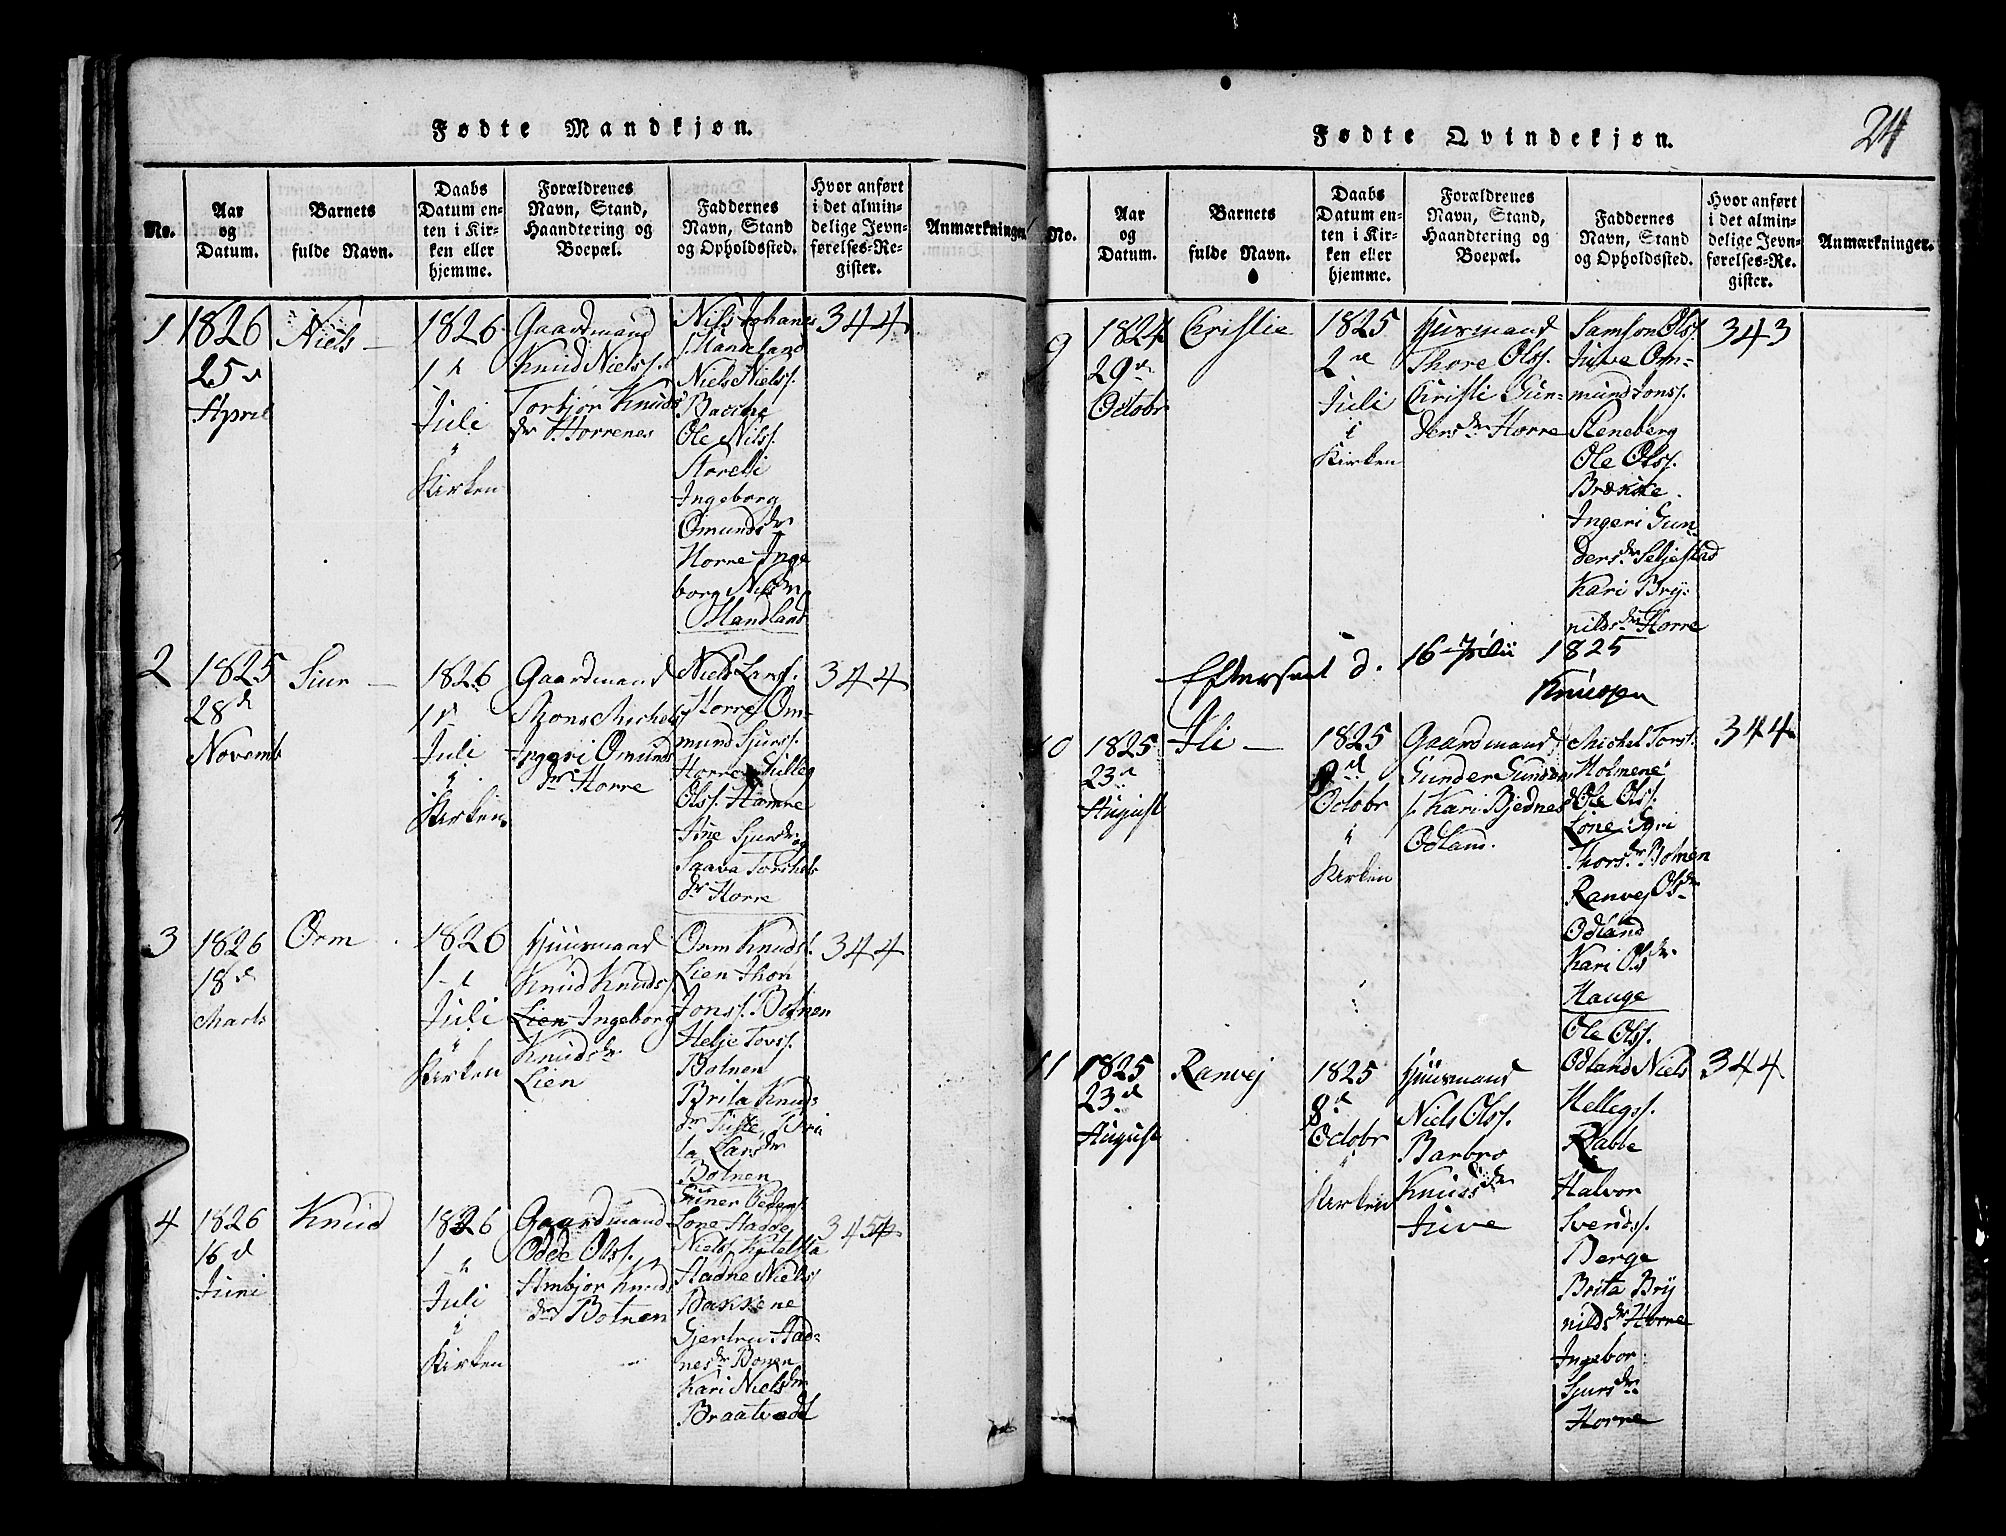 Fødte Mandkjøn.
No.
Aar
og
Datum.
Barnets
fulde Navn.
Daabs
Datum en-
ten i Kir-
ken eller
hjemme.
Forældrenes
Navn, Stand,
Haandtering og
Boepæl.
Faddernes
Navn, Stand
og Opholdssted.
Hvor anført
i det almin-
delige Jevn-
førelses-Re-
gister.
Anmærkninger
1
1826
25 d
April
Niels
1826
1 d
Juli
i
Kirken
Gaardmand
Knud Nielss.
Torbjør Knuds
dr Horrenes
Nils Johanes
s. Handeland
Niels Nielss.
Bacche
Ole Nilss.
Storeli
Ingeborg
Omunds dr
Horre Inge
borg Nils dr
Handland
344
2
1825
28 d
Novemb
Siur
1826
1 d
Juli
i
Kirken
Gaardmand
Mons Michels
Ingeri Omunds
dr Horre
Niels Larss.
Horre Om-
mund Sjurss.
Horre Sulleg
Olss. Hamre
Sjurs dr og
Saava Torkels
dr Horre
344
3
1826
18 d
Marts
Orm
1826
1 d
Juli
i
Kirken
Huusmand
Knud Knudss.
Lien Ingeborg
Knuds dr
Lien
Orm Knuds.
Lien Thon
Jonss. Botnen
Helje Tovss.
Botnen
Brita Knuds
dr Bri
ta Lars dr
Botnen
344
4
1826
16 d
Juni
Knud
1826
1 d
Juli
i
Kirken
Gaardmand
Odde Olss.
Ambjør Knuds
dr Botnen
Lone
Niels
Niels
Bakkene
Gjertru Had-
nes dr
Kari Niels dr
Braatvedt
345
Fødte Qvindekjøn.
24
No.
Aar
og
Datum.
Barnets
fulde Navn.
Daabs
Datum en-
ten i Kir-
ken eller
hjemme.
Forældrenes
Navn, Stand,
Haandtering og
Boepæl.
Faddernes
Navn, Stand
og Opholdssted.
Hvor anført
i det almin-
delige Jevn-
førelses-Re-
gister.
Anmærkninger.
9
1824
29 d
Octobr
Christie
1825
2 d
Juli
i
Kirken
Huusmand
Thore Olss.
Christi Gun-
ders dr Horre
Samson Olss.
Juve Om-
mund Jonss.
Steneberg
Ole Olss.
Brække
Ingeri Gun
ders dr Seljestad
Kari Bry-
nilds dr Horre
343
Efterseet d. 16 Julii 1825
10
1825
23 d
August
Ili
1825
8 d
Octobr
i
Kirken
Gaardmand
Gunder Gunder
s. Kari Bjednes
Odland.
Michel Torss.
Holmene
Ole Olss.
Lone Sgri
Thors dr Botnen
Ranvej Ols dr
Odland
Kari Ols dr
Hauge
344
11
1825
23 d
August
Ranvej
1825
8 d
Octobr
i
Kirken
Huusmand
Niels Olss.
Barbro
Knuds dr
Juve
Ole Olss.
Odland Niels
Hellegss.
Rabbe
Halvor
Svendss.
Berge
Brita Bry
nilds dr Horre
Ingebor
Sjurs dr
Horre
344